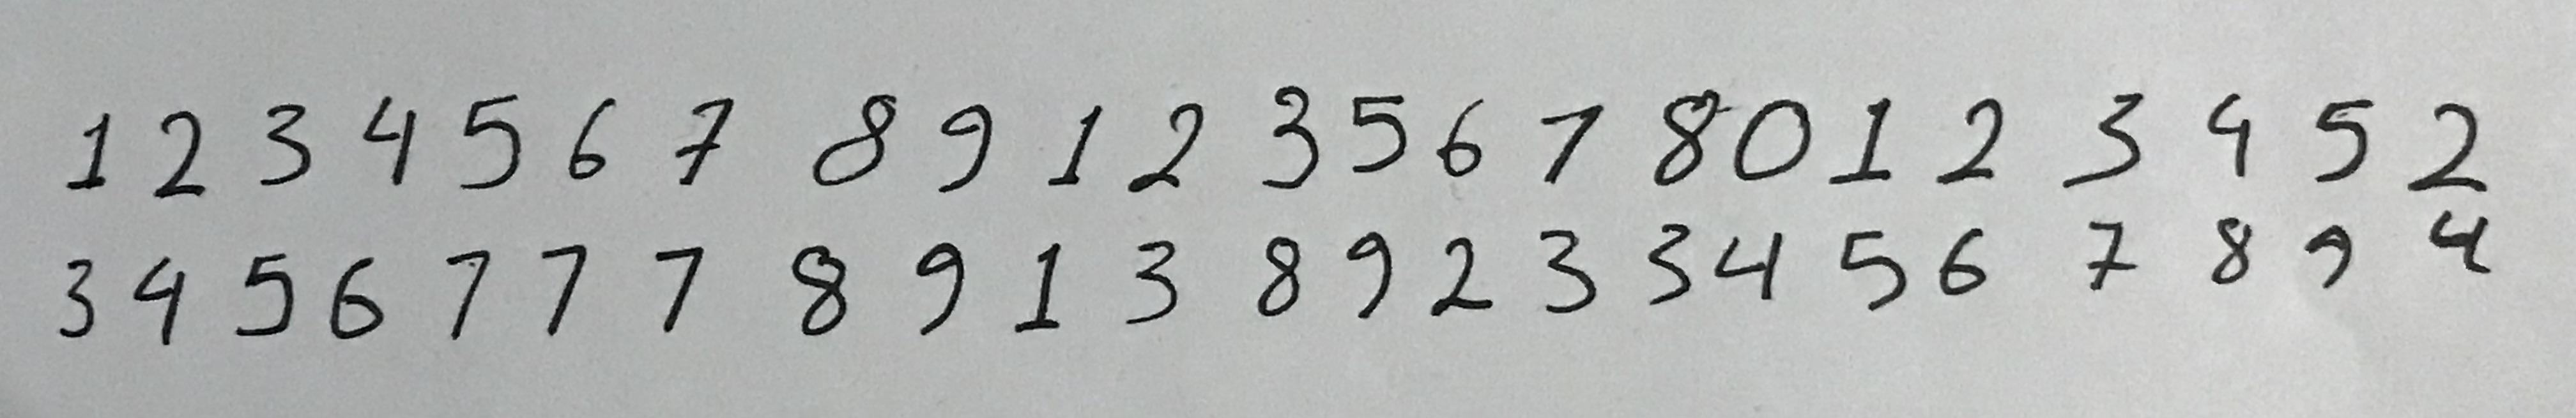 1 2 3 4 5 6 7 8 9 1 2 3 5 6 7 8 0 1 2 3 4 5 2
3 4 5 6 7 7 7 8 9 1 3 8 9 2 3 3 4 5 6 7 8 9 4